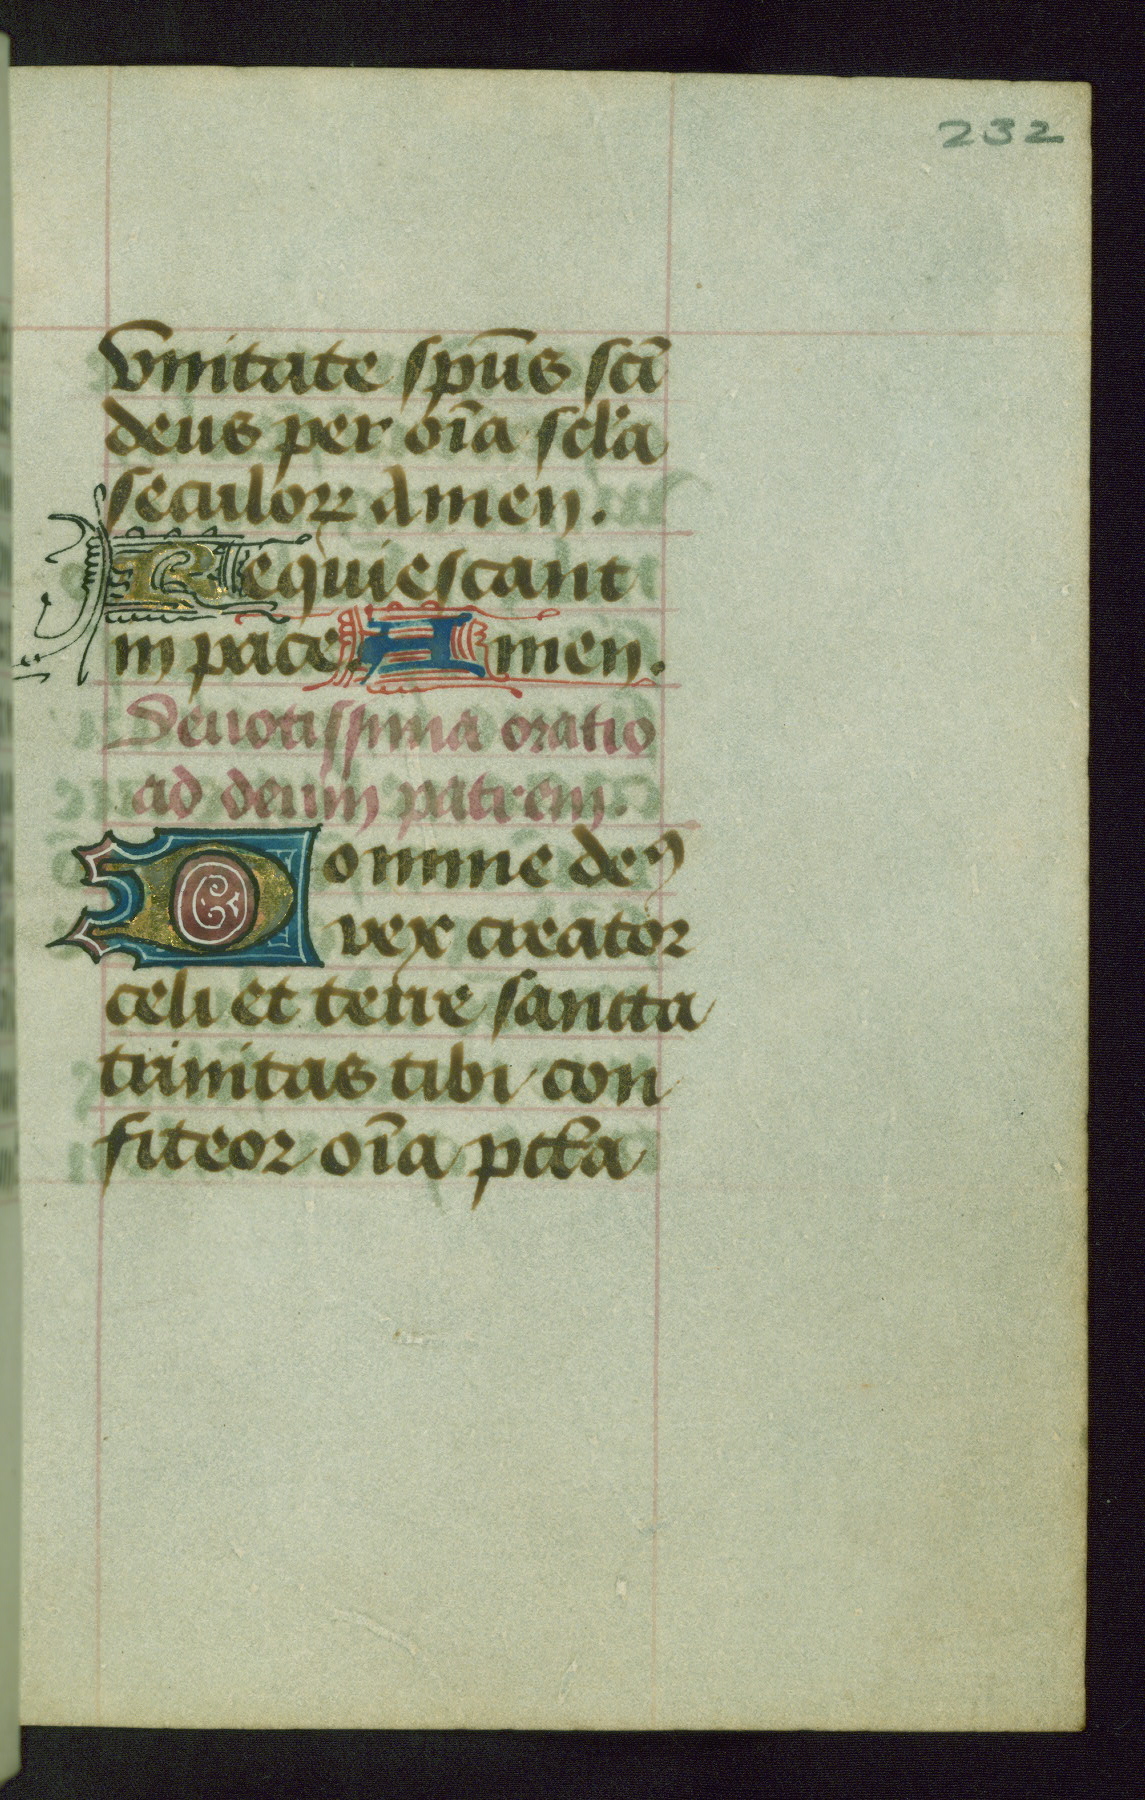 232
vnitate spūs scī
deus per oīa scła
seculoꝝ amen.
Requiescant
in pace. Amen.
Deuotissima oratio
ad deum patrem.
Domine deꝰ
rex creator
celi et terre sancta
trinitas tibi con
fiteor oīa pctā